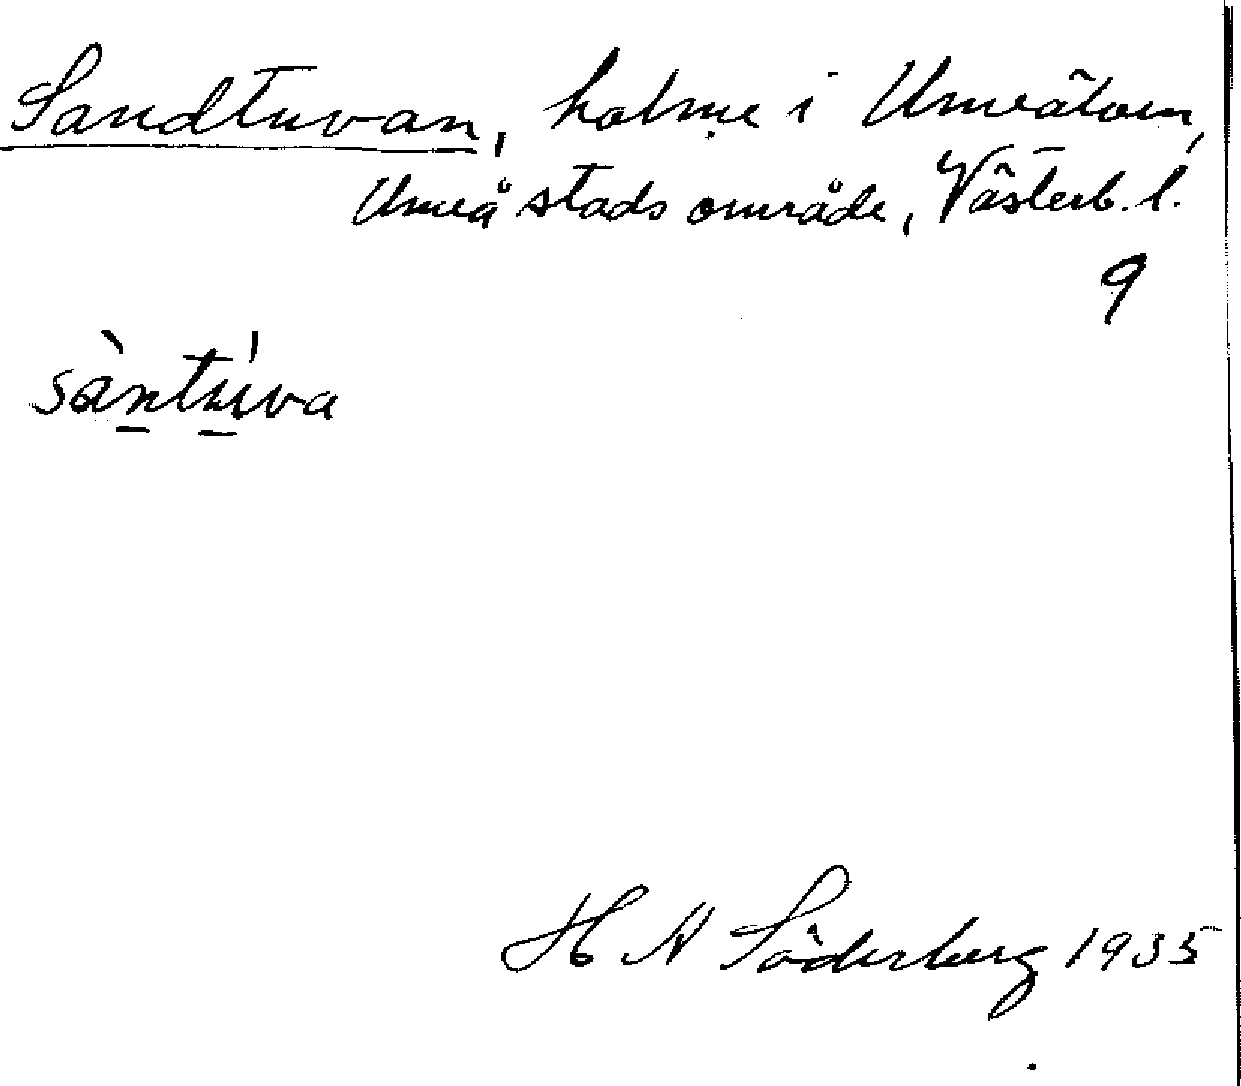 Sandtuvan, holme i Umeälven,
Umeå stadsområde, Västerb. l.
9
sàntúva
H N Söderberg 1935